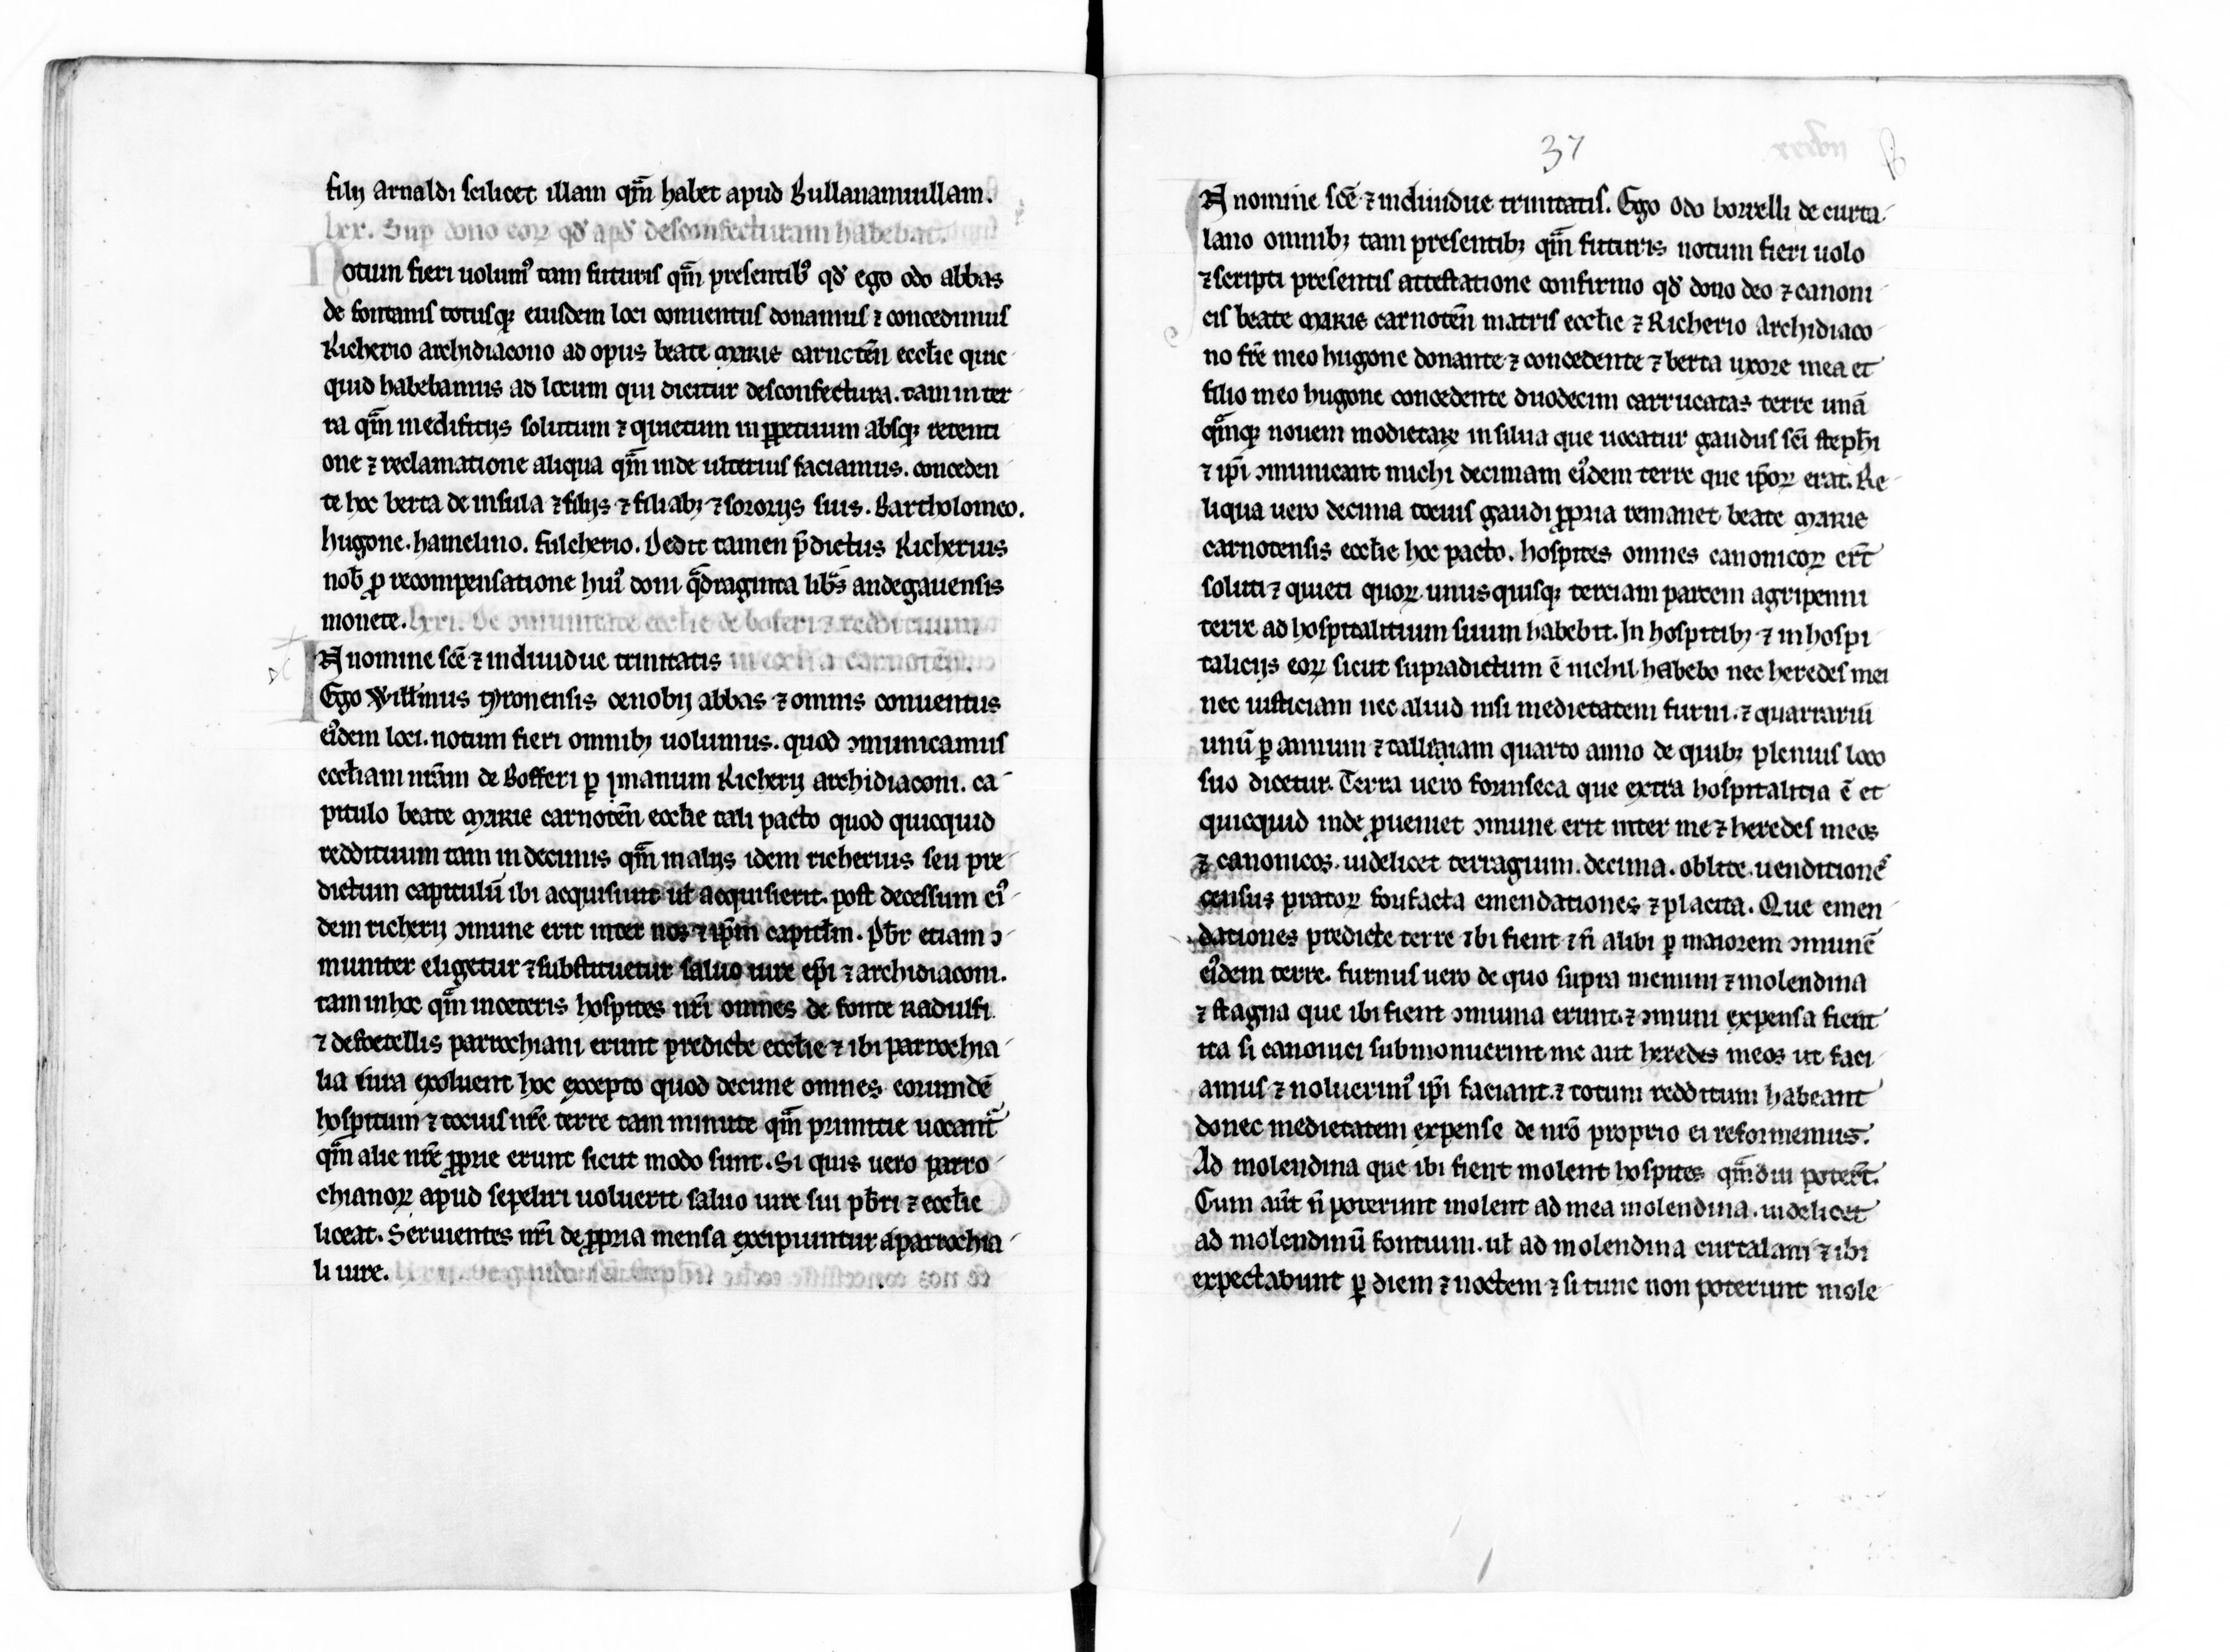 filij arnaldi scilicet illam qm̄ habet apud Bullanamuillam.
lxx. Sup dono eoꝝ qd̓ apd̓ desconfecturam habebat.
Notum fieri uolumꝰ tam futuris qm̄ presentibꝰ qd̓ ego odo abbas
de fontanis totusqꝫ eiusdem loci conuentus donamus ⁊ concedimus
Richerio archidiacono ad opus beate marie carnotēn eccłie quic
quid habebamus ad locum qui dicitur desconfectura. tam in ter
ra qm̄ in edificijs solutum ⁊ quietum in ꝑpetuum absqꝫ retenti
one ⁊ reclamatione aliqua qm̄ inde ulterius faciamus. conceden
te hoc berta de insula ⁊ filijs ⁊ filiabꝫ ⁊ sororijs suis. Bartholomeo.
hugone. hamelino. fulcherio. Dedit tamen p̄dictus Richerius
nob̄ ꝓ recompensatione huiꝰ doni qͣdraginta libͣs andegauensis
monete. lxxi. De ɔmunitate eccłie de bofferi ⁊ reddituum
IN nomine sc̄e ⁊ indiuidue trinitatis in eccłia carnotēn.
Ego Witłmus tyronensis cenobij abbas ⁊ omnis conuentus
eiꝰdem loci. notum fieri omnibꝫ uolumus. quod ɔmunicamus
eccłiam nr̄am de Bofferi ꝑ manum Richerij archidiaconi. ca
pitulo beate marie carnotēn eccłie tali pacto quod quicquid
reddituum tam in decimis qm̄ in alijs idem richerius seu pre
dictum capitulū ibi acquisiuit uł acquisierit. post decessum eiꝰ
dem richerij ɔmune erit inter nos ⁊ ip̄m capitłm. Pb̄r etiam ɔ
muniter eligetur ⁊ substituetur saluo iure ep̄i ⁊ archidiaconi.
tam in hoc qm̄ in ceteris hospites nr̄i omnes de fonte radulfi
⁊ de focellis parrochiani erunt predicte eccłie ⁊ ibi parrochia
lia iura exoluent hoc excepto quod decime omnes eorundē
hospitum ⁊ tocius nr̄e terre tam minute qm̄ primitie uocant̄
qm̄ alie nr̄e ꝓprie erunt sicut modo sunt. Si quis uero parro
chianoꝝ apud sepeliri uoluerit saluo iure sui pb̄ri ⁊ eccłie
liceat. Seruientes nr̄i de ꝓpria mensa excipiuntur a parrochia
li iure.
37
IN nomine sc̄e ⁊ indiuidue trinitatis. Ego odo borrelli de curta
lano omnibꝫ tam presentibꝫ qm̄ futuris notum fieri uolo
⁊ scripti presentis attestatione confirmo qd̓ dono deo ⁊ canoni
cis beate marie carnotēn matris eccłie ⁊ Richerio archidiaco
no fr̄e meo hugone donante ⁊ concedente ⁊ berta uxore mea et
filio meo hugone concedente duodecim carrucatas terre unā
qͣmqꝫ nouem modietaꝝ in silua que uocatur gaudus sc̄i steph̄i
⁊ ip̄i ɔmunicant michi decimam eiꝰdem terre que ip̄oꝝ erat. Re
liqua uero decima tocius gaudi ꝓpria remanet beate marie
carnotensis eccłie hoc pacto. hospites omnes canonicoꝝ er̄t
soluti ⁊ quieti quoꝝ unusquisqꝫ terciam partem agripenni
terre ad hospitalitium suum habebit. In hospitibꝫ ⁊ in hospi
talicijs eoꝝ sicut supradictum ē nichil habebo nec heredes mei
nec iusticiam nec aliud nisi medietatem furni. ⁊ quarrariū
unū ꝑ annum ⁊ talliatam quarto anno de quibꝫ plenius loco
suo dicetur. Terra uero forinseca que extra hospitalitia ē et
quicquid inde ꝓueniet ɔmune erit inter me ⁊ heredes meos
⁊ canonicos. uidelicet terragium. decima. oblite. uenditionē
census pratoꝝ forifacta emendationes ⁊ placita. Que emen
dationes predicte terre ibi fient ⁊ n̄ alibi ꝑ maiorem ɔmunē
eiꝰdem terre. furnus uero de quo supra memini ⁊ molendina
⁊ stagna que ibi fient ɔmunia erunt. ⁊ ɔmuni expensa fient
ita si canonici submonuerint me aut heredes meos ut faci
amus ⁊ noluerimꝰ ip̄i faciant. ⁊ totum redditum habeant
donec medietatem expense de nr̄o proprio ei reformemus.
Ad molendina que ibi fient molent hospites qm̄diu poter̄t.
Cum aūt n̄ poterunt molent ad mea molendina. uidelicet
ad molendinū fontium. uł ad molendina curtalani ⁊ ibi
expectabunt ꝑ diem ⁊ noctem ⁊ si tunc non poterunt mole